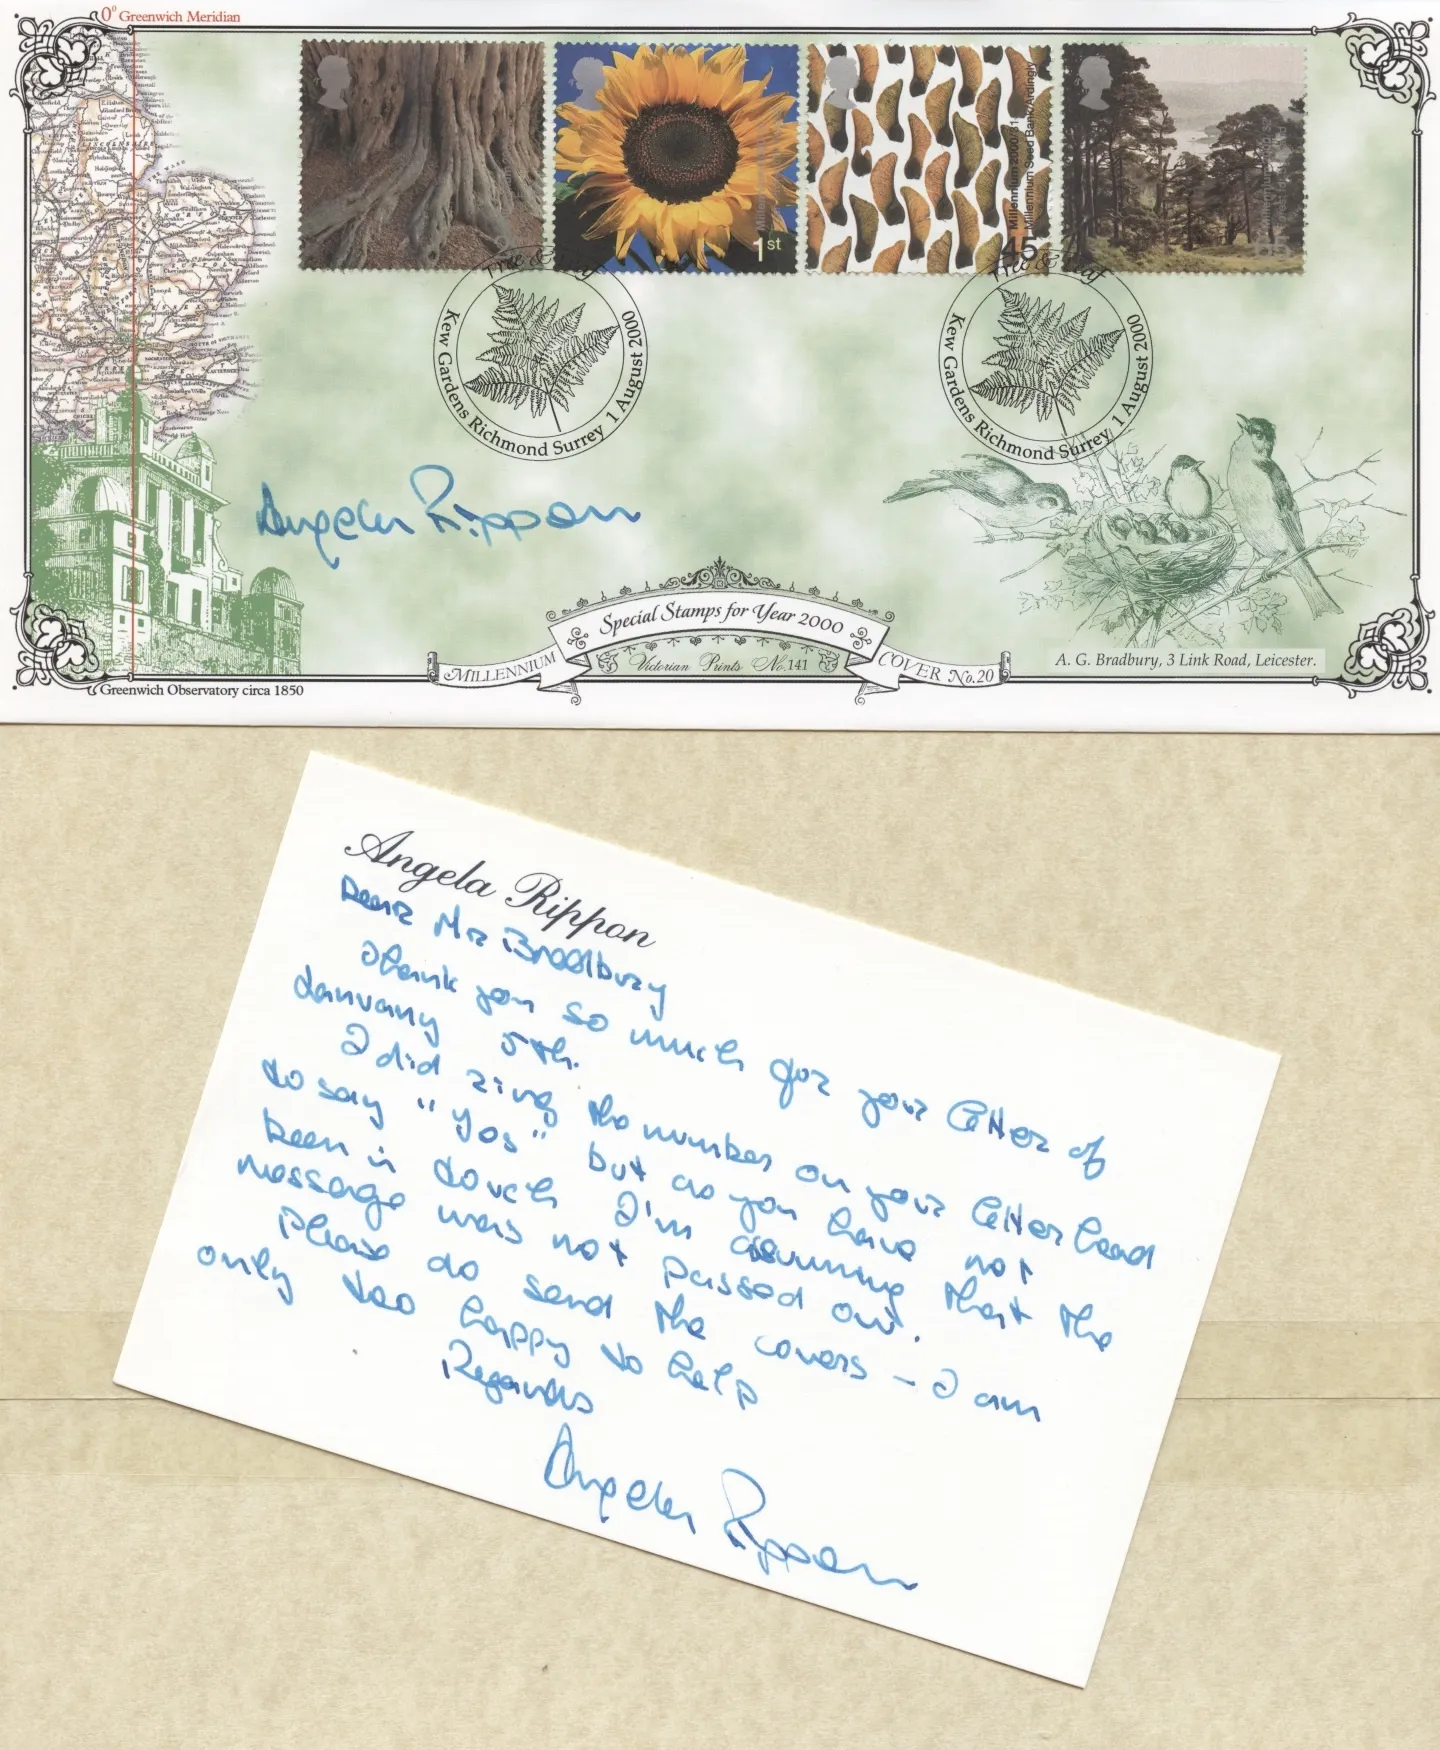 0° Greenwich Meridian
1st
Millennium 2000/31
Millennium Seed Bank/Ardingly
45
Tree & Leaf
Kew Gardens Richmond Surrey 1 August 2000
Tree & Leaf
Kew Gardens Richmond Surrey 1 August 2000
Angela Rippon
Special Stamps for Year 2000
MILLENNIUM
Victorian Prints No.141
COVER No.20
A. G. Bradbury, 3 Link Road, Leicester.
Greenwich Observatory circa 1850
Angela Rippon
Dear Mr Bradbury
Thank you so much for your letter of
January 5th.
I did ring the number on your letter head
to say "Yes" but as you have not
been in touch I'm assuming that the
message was not passed on.
Please do send the covers – I am
only too happy to help
Regards
Angela Rippon